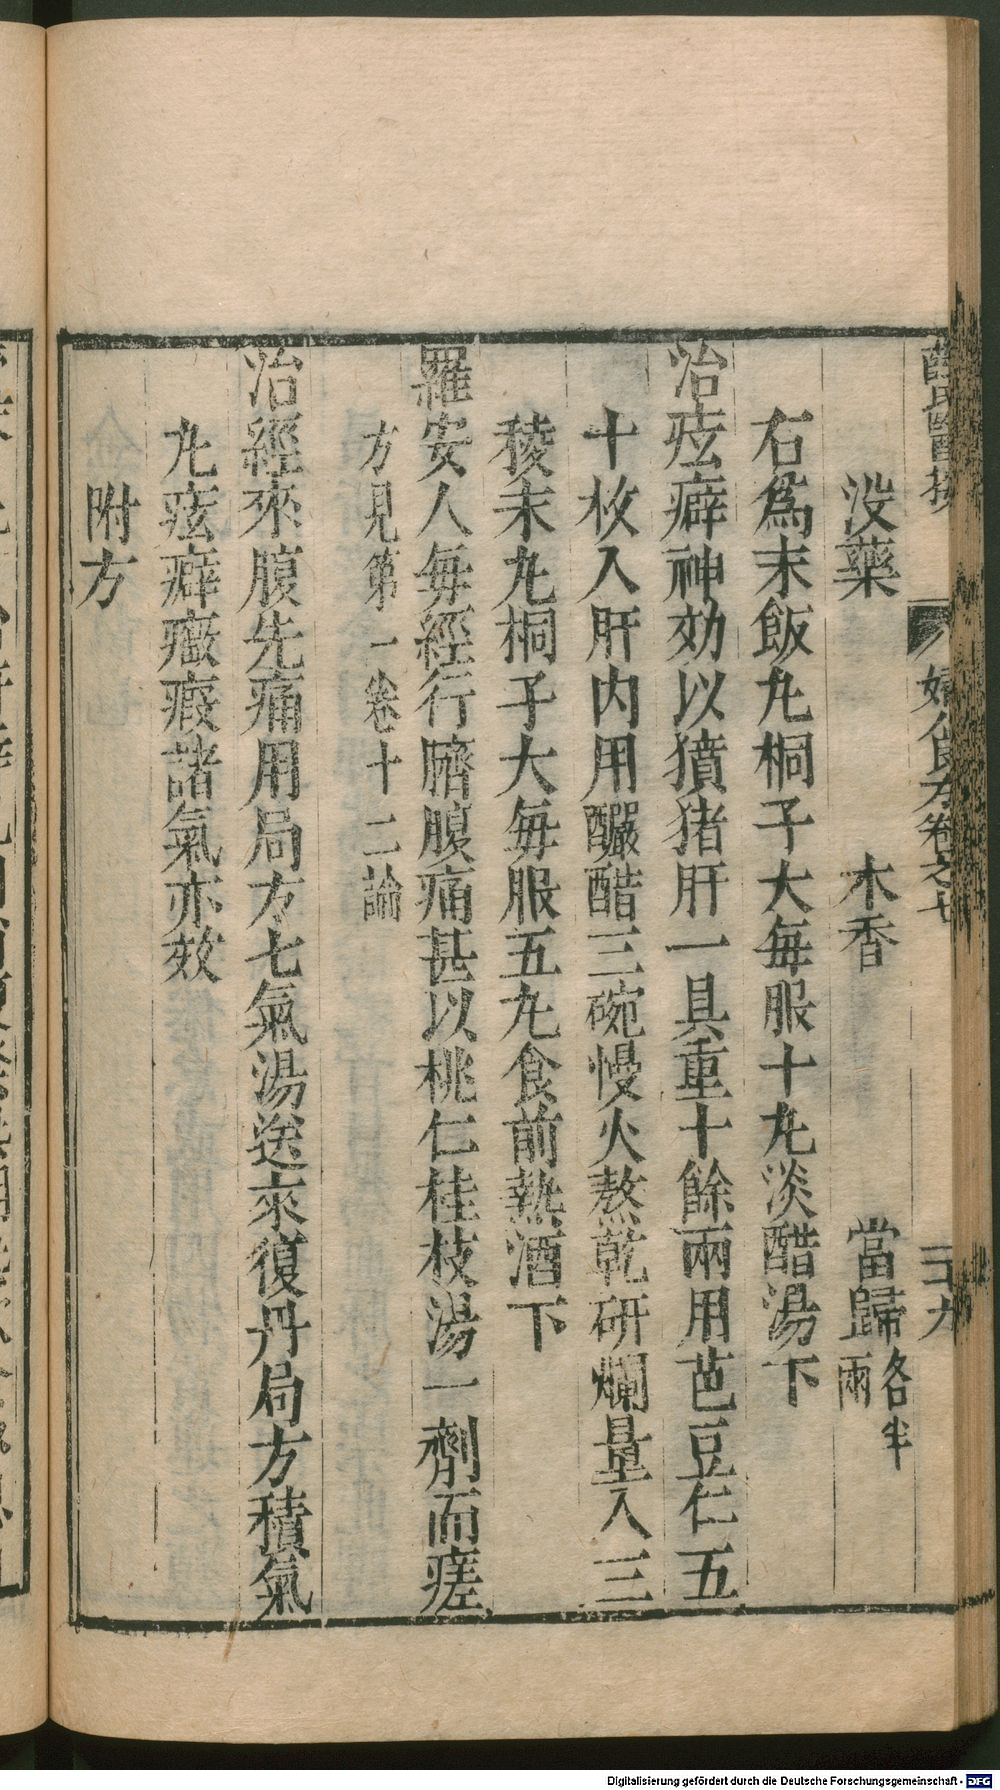 沒藥 木香 當歸各半兩
右爲末飯丸桐子大每服十丸淡醋湯下
治痃癖神効以獖猪肝一具重十餘兩用芭豆仁五
十枚入肝内用釅醋三碗慢火熬乾研爛量入三
稜末丸桐子大每服五丸食前熱酒下
羅安人每經行臍腹痛甚以桃仁桂枝湯一劑而瘥
方見第一卷十二論
治經來腹先痛用局方七氣湯送來復丹局方積氣
丸痃癖癥瘕諸氣亦效
附方
婦人良方卷之七
Digitalisierung gefördert durch die Deutsche Forschungsgemeinschaft - DFG